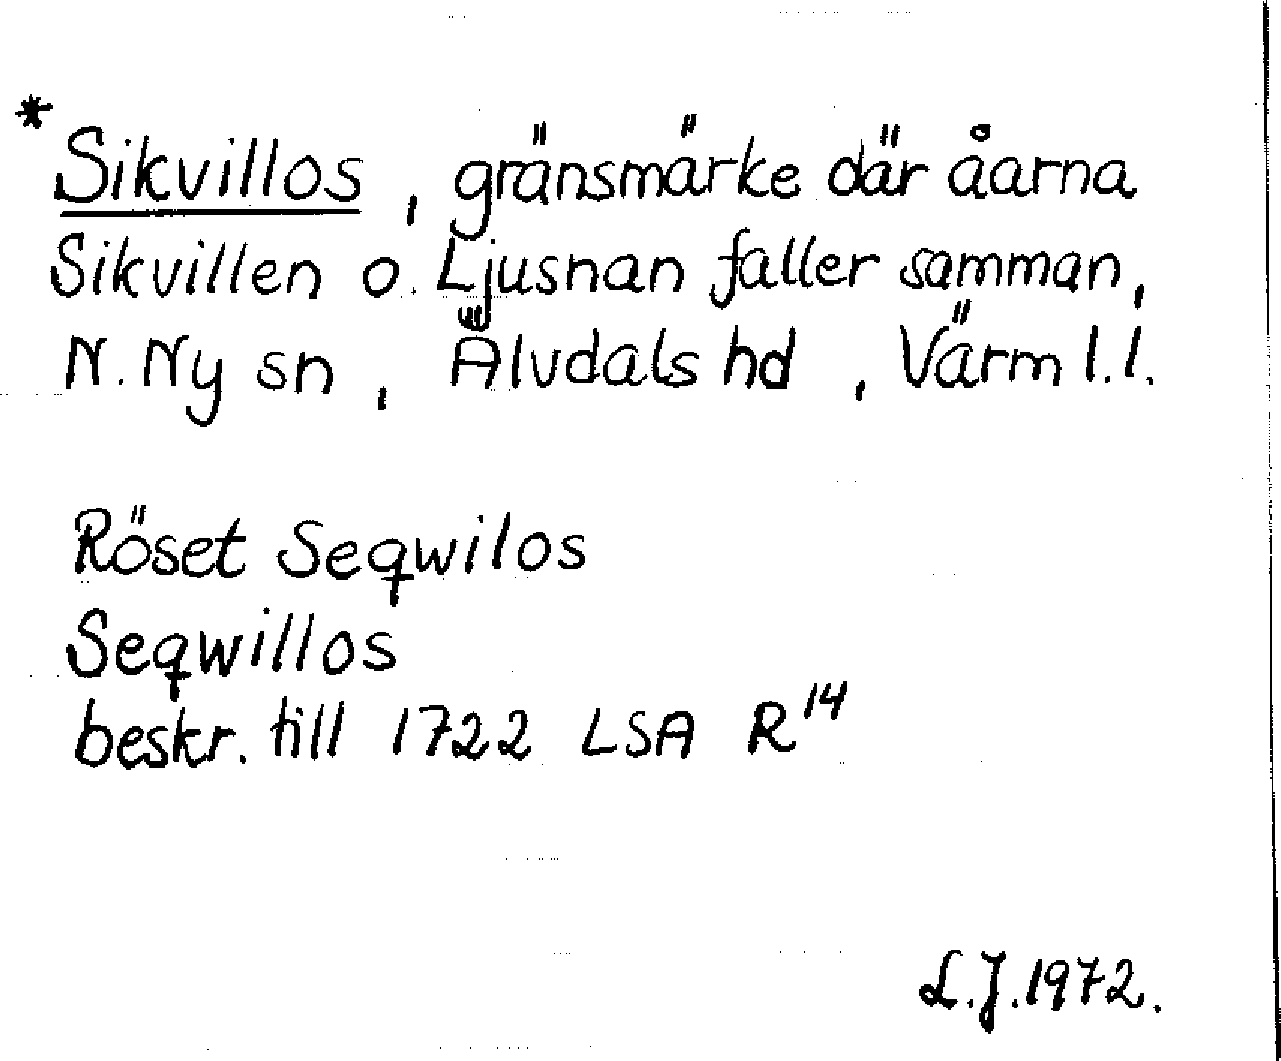 * Sikvillos, gränsmärke där åarna
Sikvillen o. Ljusnan faller samman,
N. Ny sn, Älvdals hd, Värml. l.
Röset Seqwilos
Seqwillos
beskr. till 1722 LSA R 14
L.J. 1972.